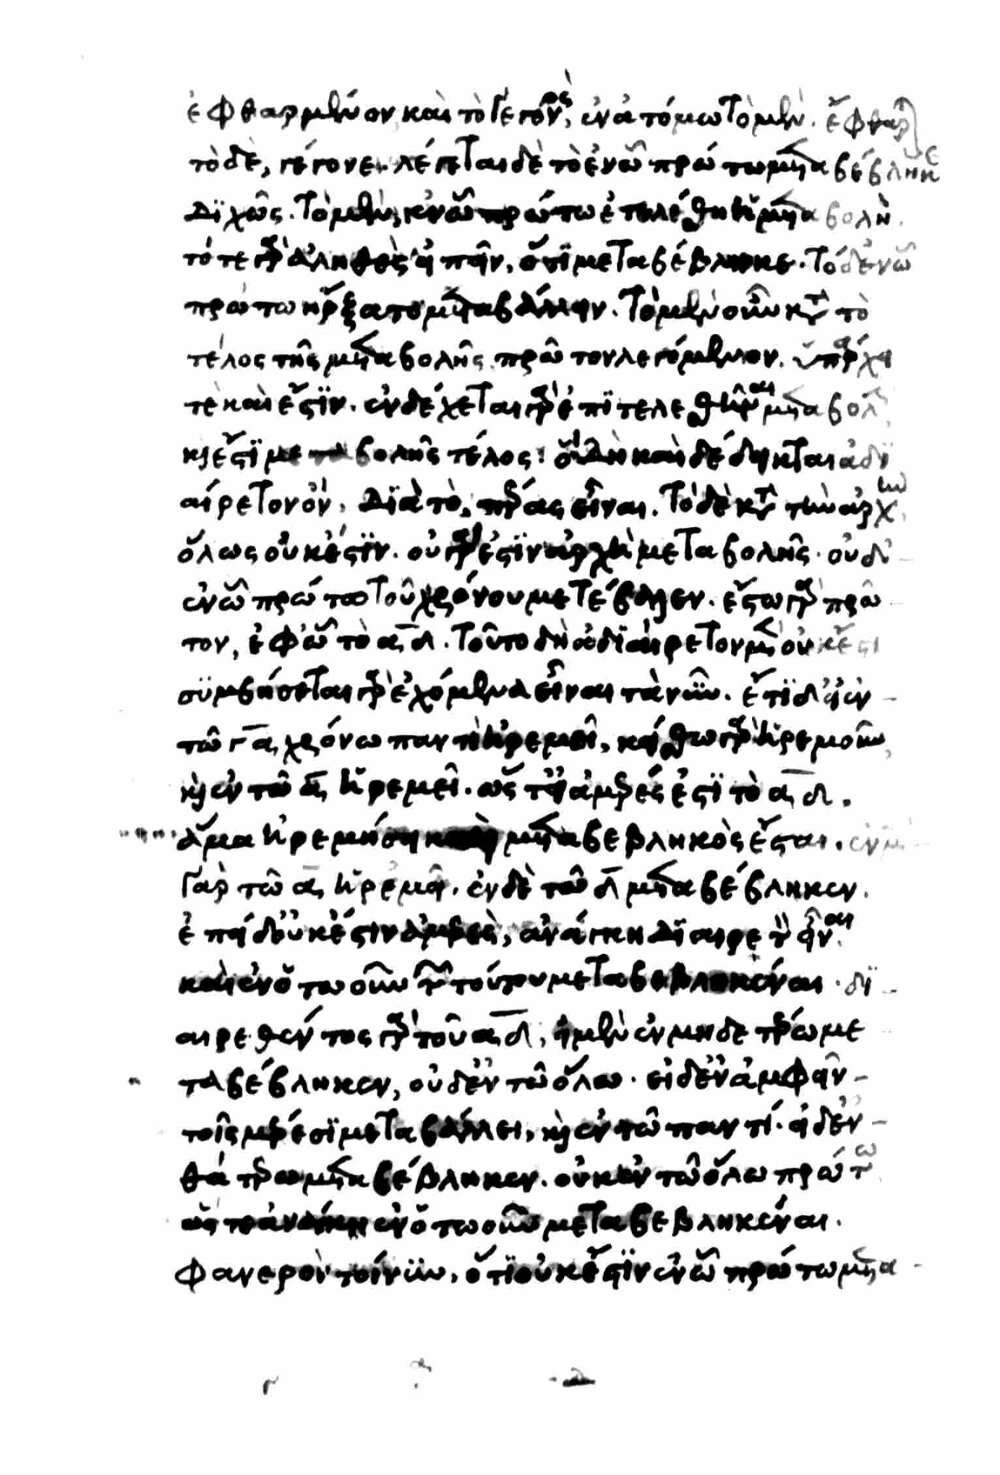 ἐφθαρμένον καὶ τὸ γεγονὸς, ἐν ἀτόμω τὸ μὲν ἔφθαρ
τὸ δὲ, γέγονε. λέγεται δὲ τὸ ἐν ὧ πρώτω μεταβέβληκε
διχῶς. τὸ μὲν, ἐν ὧ πρώτω ἐπετελέσθη ἡ μεταβολὴ.
τότε γὰρ ἀληθὲς εἰπεῖν, ὅτι μεταβέβληκε. τὸ δ' ἐν ὧ
πρώτω ἤρξατο μεταβάλλειν. τὸ μὲν οὖν κατὰ τὸ
τέλος τῆς μεταβολῆς πρῶτον λεγόμενον. ὑπάρχει
τὲ καὶ ἔστιν. ἐνδέχεται γὰρ ἐπιτελεσθῆναι μεταβολ
καὶ ἔστι μεταβολῆς τέλος. ὃ δὴ καὶ δέδεικται ἀδι
αίρετον ὂν, διὰ τὸ, πέρας εἶναι. τὸ δὲ κατὰ τὴν ἀρχὴν
ὅλως οὐκ ἔστιν. οὐ γάρ ἐστιν ἀρχὴ μεταβολῆς. οὐδ'
ἐν ὧ πρώτω τοῦ χρόνου μετέβαλλεν. ἔστω γὰρ πρῶ
τον, ἐφ' ὧ τὸ ᾱδ̄. τοῦτο δὴ ἀδιαίρετον μὲν οὐκ ἔστι
συμβήσεται γὰρ ἐχόμενα εἶναι τὰ νῦν. ἔτι δ' εἰ ἐν
τῶ γ̄ᾱ χρόνω παντὶ ἠρεμεῖ, κείσθω γὰρ ἠρεμοῦν,
καὶ ἐν τῶ ᾱ ἠρεμεῖ. ὥστ' εἰ ἀμερές ἐστι τὸ ᾱδ̄.
ἅμα ἠρεμήσει καὶ μεταβεβληκὸς ἔσται. ἐν μὲν
γὰρ τῶ ᾱ ἠρεμεῖ. ἐν δὲ τῶ δ̄ μεταβέβληκεν.
ἐπεὶ δ' οὐκ ἔστιν ἀμερὲς, ἀνάγκη διαιρετὸν εἶναι.
καὶ ἐν ὁτωοῦν τῶν τούτου μεταβεβληκέναι. δι
αιρεθέντος γὰρ τοῦ ᾱδ̄, εἰ μὲν ἐν μηδετέρω με
ταβέβληκεν, οὐδ' ἐν τῶ ὅλω. εἰ δ' ἐν ἀμφοῖν
τοῖς μέρεσι μεταβάλλει, καὶ ἐν τῶ παντί. εἰ δ' ἐν
θατέρω μεταβέβληκεν. οὐκ ἐν τῶ ὅλω πρώτω
ὥστε ἀνάγκη ἐν ὁτωοῦν μεταβεβληκέναι.
φανερὸν τοίνυν, ὅτι οὐκ ἔστιν ἐν ὧ πρώτω μετα